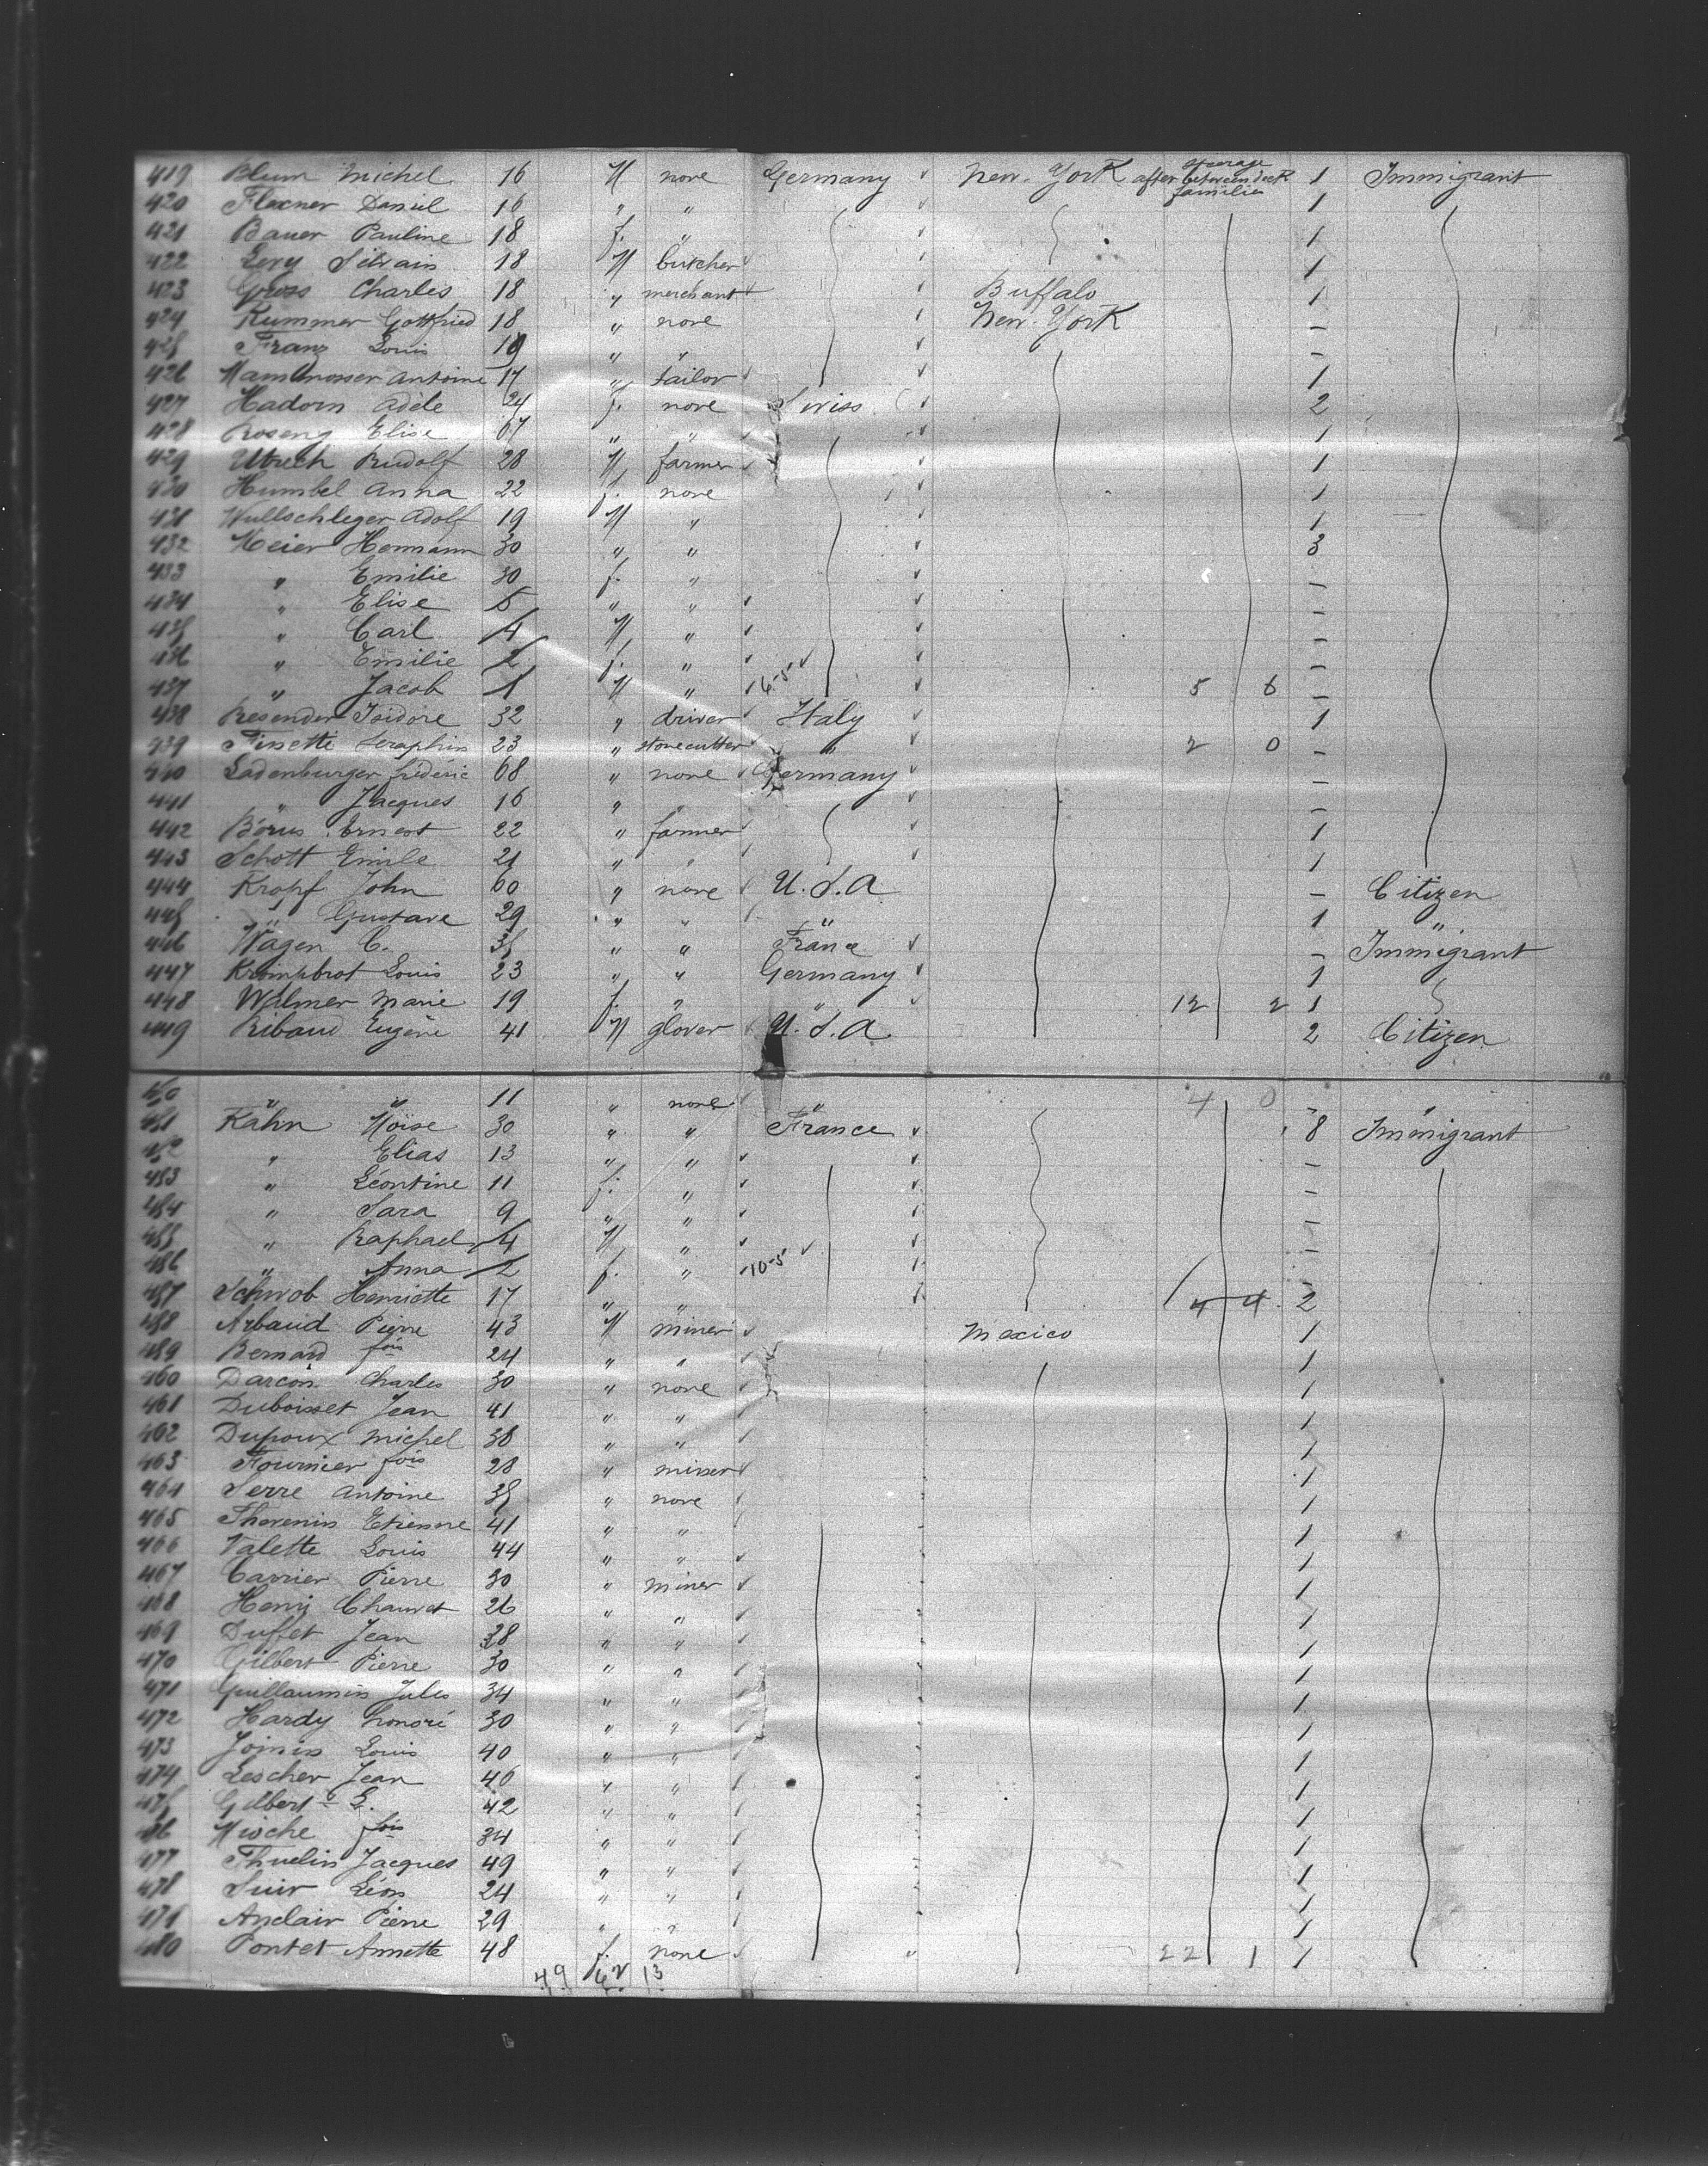 419 Blum Michel 16 M none Germany New-York steerage after betweendeck families 1 Immigrant
420 Flexner Daniel 16 " " 1
421 Bauer Pauline 18 f. " 1
422 Levy Silvain 18 M butcher 1
423 Gross Charles 18 " merchant Buffalo 1
424 Kummer Gottfried 18 " none New-York –
425 Franz Louis 19 " " –
426 Antoine 17 " tailor 1
427 Hadorn Adele 24 f. none Swiss 2
428 Roseng Elise 67 " " 1
429 Rudolf 28 M farmer 1
430 Humbel Anna 22 f. none 1
431 Wullschleger Adolf 19 M " 1
432 Meier Hermann 30 " " 3
433 " Emilie 30 f. " –
434 " Elise 5 " " –
435 " Carl 4 M " –
436 " Emilie 2 f. " –
437 " Jacob 1 M " 6-5 5 6 –
438 Isidore 32 " driver Italy 1
439 Finetti Seraphin 23 " stonecutter " 2 0 –
440 Ladenburger frédéric 68 " none Germany –
441 " Jacques 16 " –
442 Börus Ernest 22 " farmer 1
443 Schott Emile 21 " " 1
444 Kropf John 60 " none U.S.A – Citizen
445 " Gustave 29 " " " 1 "
446 Wagen C. 35 " " France – Immigrant
447 Louis 23 " " Germany 1
448 Walmer Marie 19 f. " " 12 2 1
449 Ribaud Eugène 41 M glover U.S.A 2 Citizen
450 " " 11 " none " 4 0 – "
451 Kahn Moïse 30 " " France 8 Immigrant
452 " Elias 13 " " –
453 " Léontine 11 f. " –
454 " Sara 9 " " –
455 " Raphael 4 M " –
456 " Anna 2 f. " 10-5 –
457 Schwob Henriette 17 " " 4 4 2
458 Arbaud Pierre 43 M miner Mexico 1
459 Bernard fois 24 " " 1
460 Darcon Charles 30 " none 1
461 Duboisset Jean 41 " " 1
462 Dupoux Michel 38 " " 1
463 Fournier fois 28 " miner 1
464 Serre Antoine 35 " none 1
465 Thevenin Etienne 41 " " 1
466 Valette Louis 44 " " 1
467 Carrier Pierre 30 " miner 1
468 Henry Chauvet 26 " " 1
469 Duffet Jean 28 " " 1
470 Gilbert Pierre 30 " " 1
471 Guillaumin Jules 34 " " 1
472 Hardy honoré 30 " " 1
473 Joinin Louis 40 " " 1
474 Lescher Jean 46 " " 1
475 Gilbert G. 42 " " 1
476 Mioche fois 34 " " 1
477 Thuelin Jacques 49 " " 1
478 Suir Léon 24 " " 1
479 Anclair Pierre 29 " " 1
480 Pontet Annette 48 f. none " 22 1 1
49 62 13